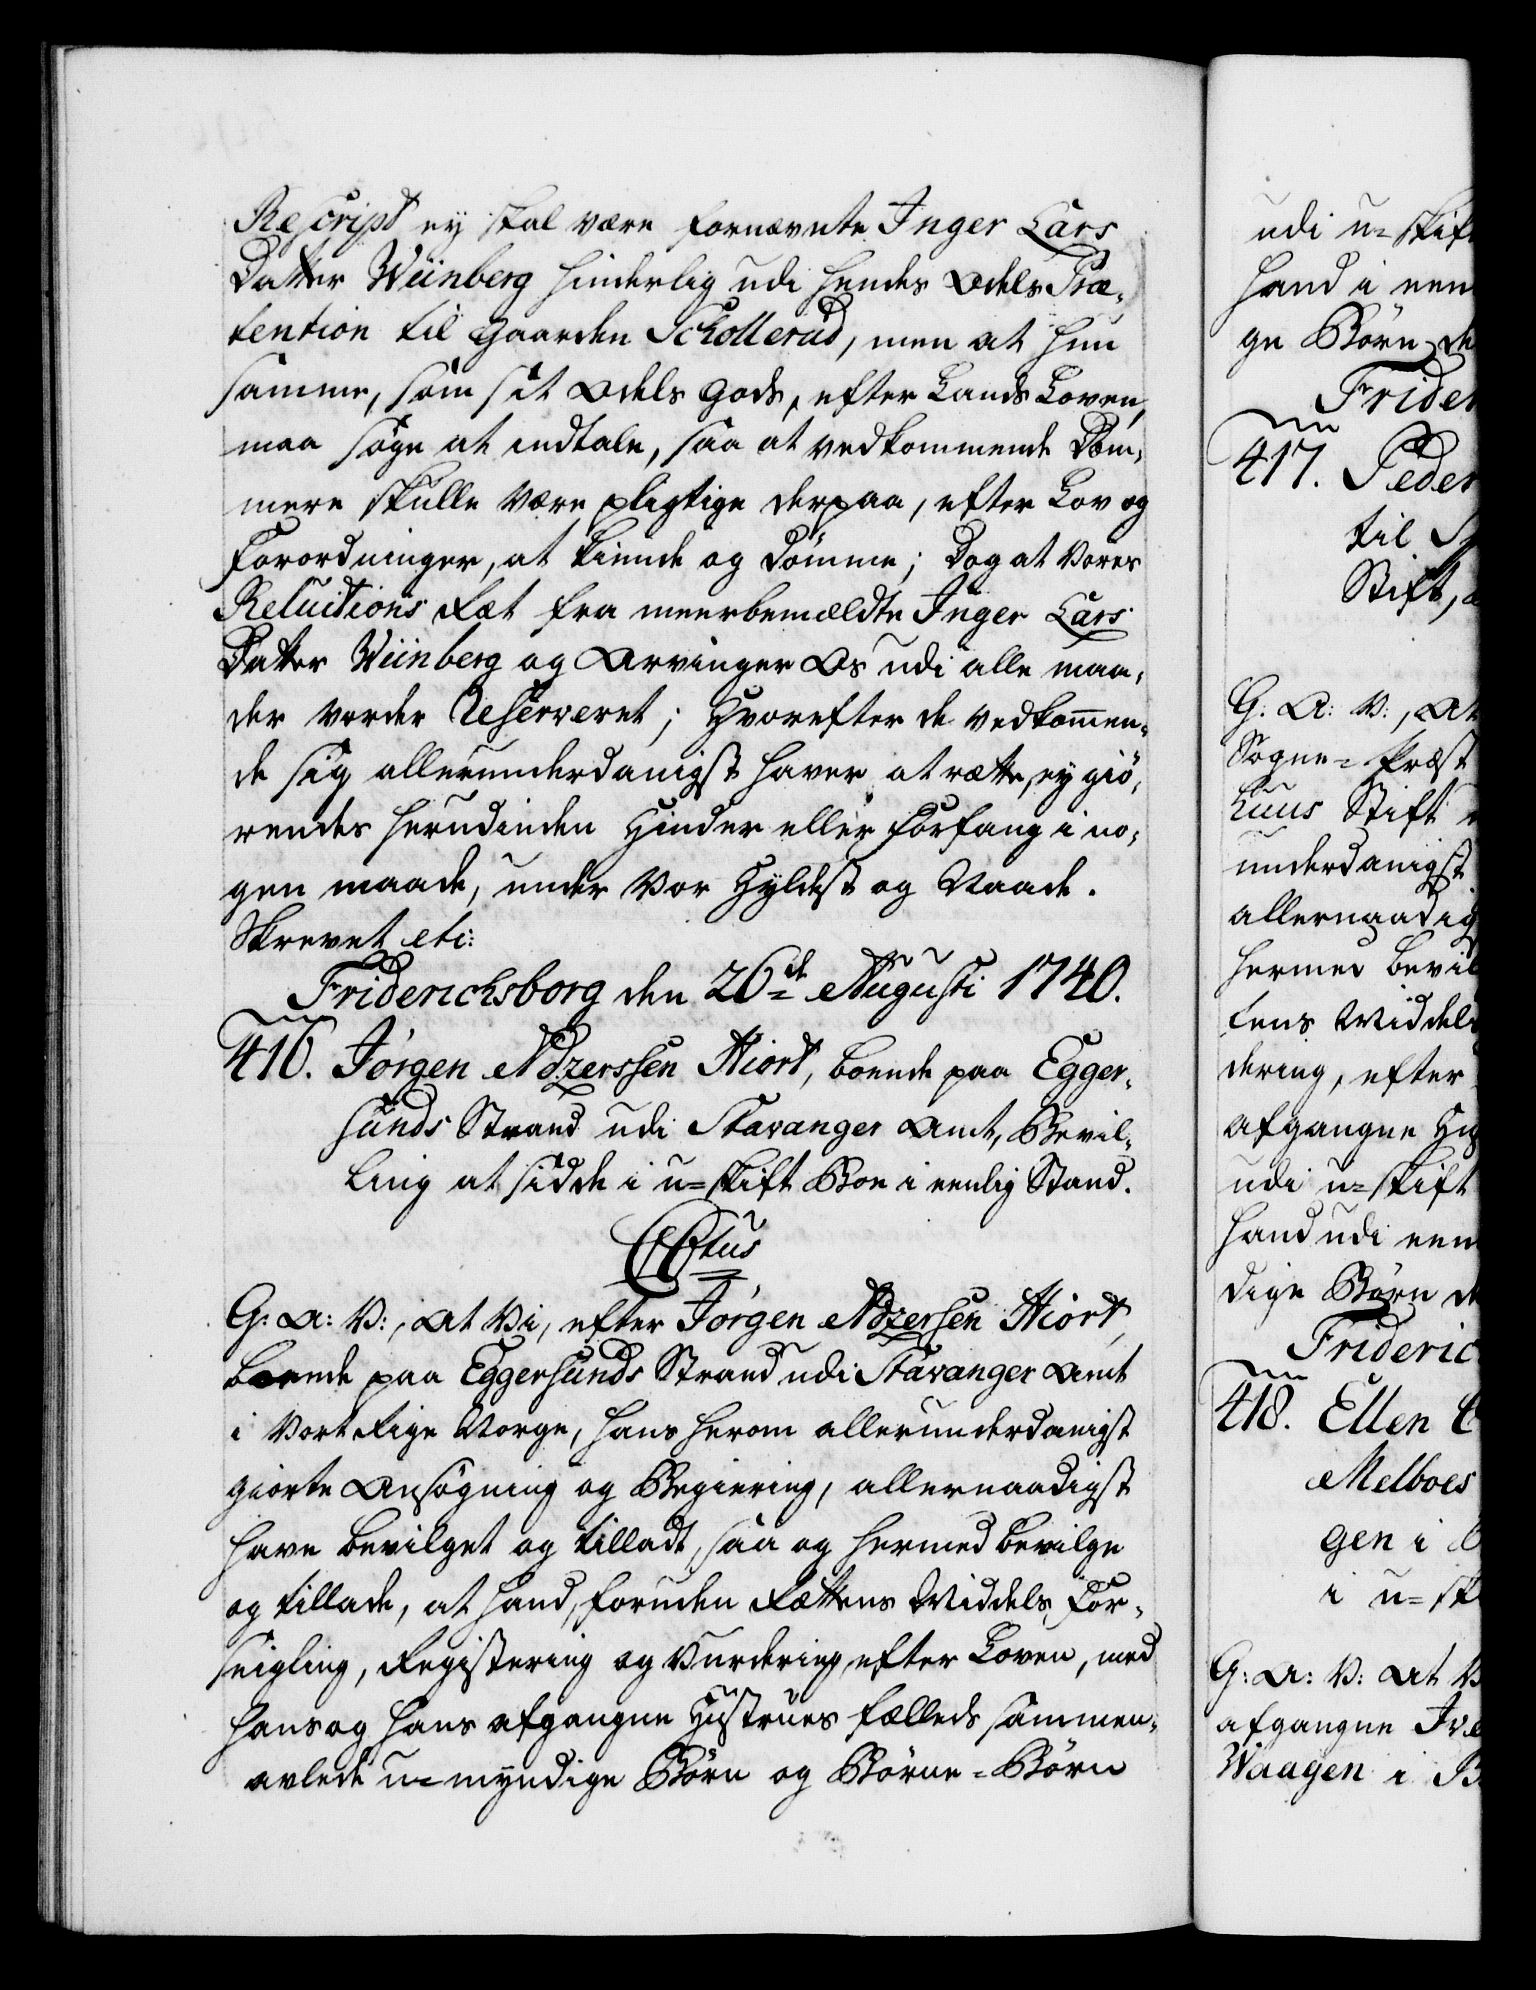 Rescript ey skal være fornævnte Inger Lars
Datter Wiinberg hinderlig udi hendes Odels Præ-
tention til Gaarden Schollerud, men at hun
samme, som sit Odels Gods, efter Lands Loven,
maa søge at indtale, saa at vedkommende Dom-
mere skulle være pligtige derpaa, efter Lov og
Forordninger, at kiende og dømme; Dog at Vores
Reluitions Ræt fra meerbemældte Inger Lars
Datter Wiinberg og Arvinger Os udi alle maa-
der vorder Reserveret; Hvorefter de vedkommen-
de sig allerunderdanigst haver at rætte, ey giø-
rendes herudinden Hinder eller Forfang i no-
gen maade, under Vor Hyldest og Naade.
Skrevet etc:
Friderichsborg den 26de Augusti 1740.
416. Jørgen Adzerssen Hiort, boende paa Egger-
sunds Strand udi Stavanger Amt, Bevil-
ling at sidde i u-skift Boe i eenlig Stand.
C6tus
G: A: V:, At Vi, efter Jørgen Adzersen Hiort,
boende paa Eggersunds Strand udi Stavanger Amt
i Vort Rige Norge, hans herom allerunderdanigst
giorte Ansøgning og Begiering, allernaadigst
have bevilget og tilladt, saa og hermed bevilge
og tillade, at hand, foruden Rættens Middels For-
seigling, Registering og Vurdering, efter Loven, med
hans og hans afgangne Hustrues fælleds sammen-
avlede u-myndige Børn og Børne-Børn
udi u-skift
hand i een
ge Børn de
Frider
417. Peder
til
Stift,
G: A: V:, At
Sogne-Præst
huus Stift
underdanigst
allernaadig
hermed bevil
tens Middels
dering, efter
afgangne Hu
udi u-skift
hand udi een
dige Børn de
Frideric
418. Ellen
Melboes
gen i
i u-sk
G: A: V: At V
afgangne Ive
Waagen i B